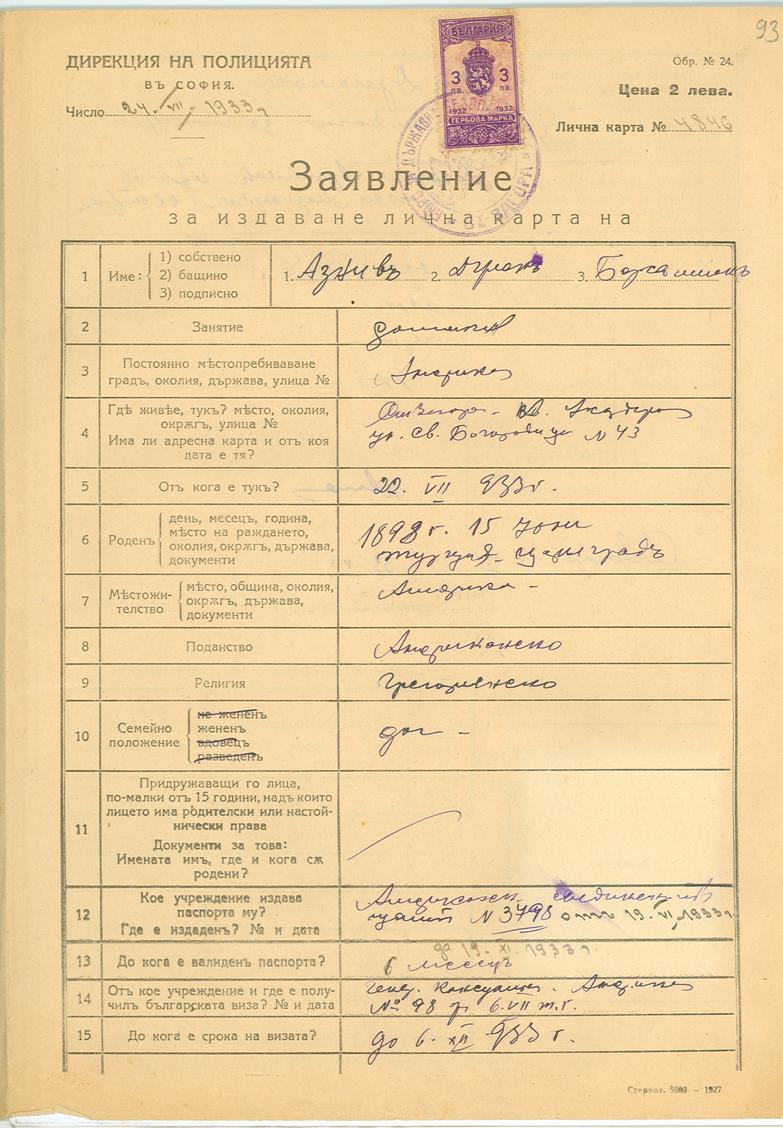 93
ДИРЕКЦИЯ НА ПОЛИЦИЯТА
ВЪ СОФИЯ.
Число 24. VII 1933 г
БЪЛГАРИЯ
3 3
ЛВ. ЛВ.
1932 1932
ГЕРБОВА МАРКА
Обр. № 24.
Цена 2 лева.
Лична карта № 4846
Заявление
за издаване лична карта на
1 Име: 1) собствено 2) бащино 3) подписно 1. Азнивъ 2. 3.
2 Занятие
3 Постоянно мѣстопребиваване
градъ, околия, държава, улица № Америка
4 Гдѣ живѣе, тукъ? мѣсто, околия,
окрѫгъ, улица №
Има ли адресна карта и отъ коя
дата е тя?
ул. Св. Богородица N 43
5 Отъ кога е тукъ? 22. VII 933 г.
6 Роденъ день, месецъ, година,
мѣсто на раждането,
околия, окрѫгъ, държава,
документи
15 Юни
Турция - Цариградъ
7 Мѣстожи-
телство мѣсто, община, околия,
окрѫгъ, държава,
документи
Америка -
8 Поданство Американско
9 Религия Грегориянско
10 Семейно
положение
не жененъ
жененъ
вдовецъ
разведенъ
да -
11 Придружаващи го лица,
по-малки отъ 15 години, надъ които
лицето има родителски или настой-
нически права
Документи за това:
Имената имъ, где и кога сѫ
родени?
12 Кое учреждение издава
паспорта му?
Где е издаденъ? № и дата
щати N 3798 отъ 19. VI 1933 г.
13 До кога е валиденъ паспорта? до 19. XI. 1933 г.
6 месеца
14 Отъ кое учреждение и где е полу-
чилъ българската виза? № и дата
№ 98 от 6. VII т. г.
15 До кога е срока на визата? до 6. XII 933 г.
Стереот. 5000 — 1927